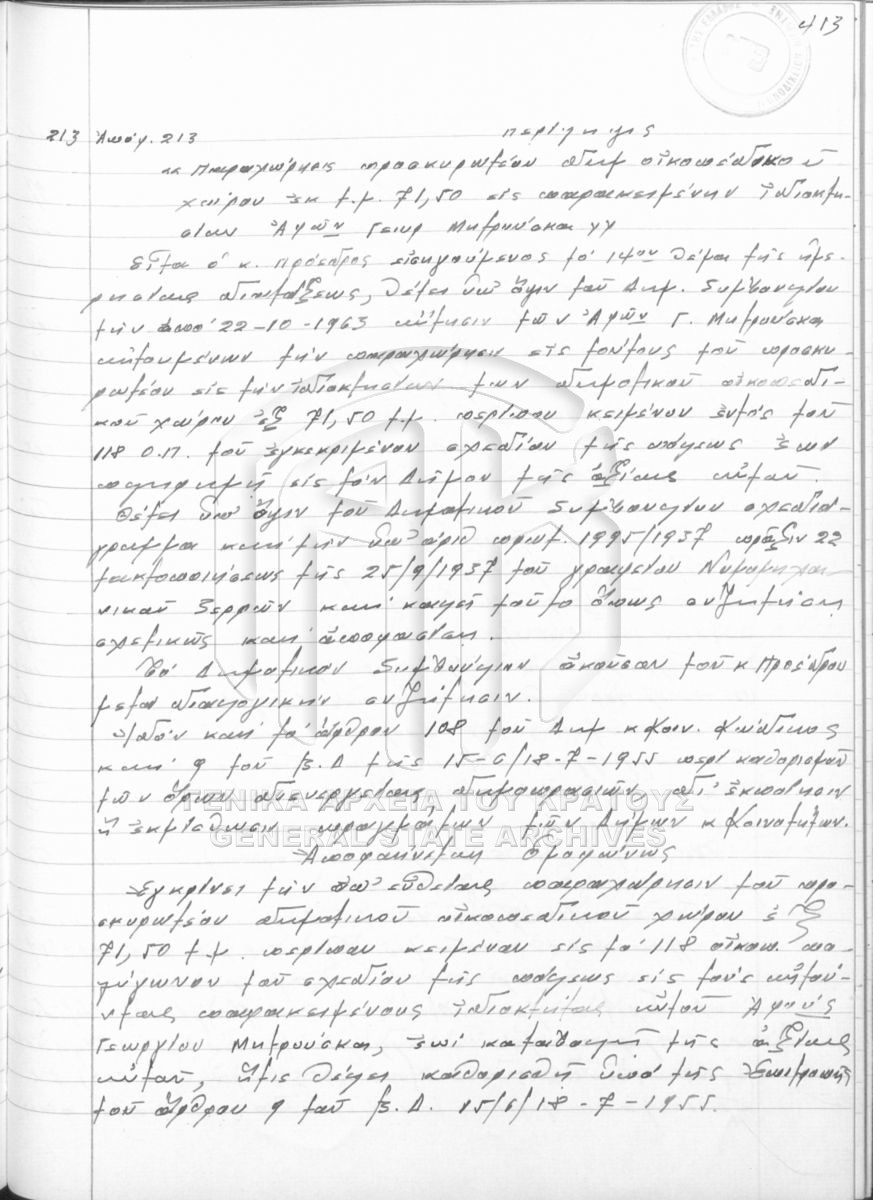 413
213 Ἀπόφ. 213 Περίληψις
«Παραχώρησις προσκυρωτέου δημ. οἰκοπεδικοῦ
χώρου ἐκ τ.μ. 71,50 εἰς παρακειμένην ἰδιοκτη-
σίαν Ἀφῶν Γεωρ Μητρούσκα»
Εἶτα ὁ κ. Πρόεδρος εἰσηγούμενος τό 14ον θέμα τῆς ἡμε-
ρησίας διατάξεως, θέτει ὑπ' ὄψιν τοῦ Δημ. Συμβουλίου
τήν ἀπό 22-10-1963 αἴτησιν τῶν Ἀφῶν Γ. Μητρούσκα
αἰτουμένων τήν παραχώρησιν εἰς τούτους τοῦ προσκυ-
ρωτέου εἰς τήν ἰδιοκτησίαν των δημοτικοῦ οἰκοπεδι-
κοῦ χώρου ἐξ 71,50 τ.μ. περίπου κειμένου ἐντός τοῦ
118 Ο.Π. τοῦ ἐγκεκριμένου σχεδίου τῆς πόλεως ἐπί
πληρωμῇ εἰς τόν Δῆμον τῆς ἀξίας αὐτοῦ.
Θέτει ὑπ' ὄψιν τοῦ Δημοτικοῦ Συμβουλίου σχεδιά-
γραμμα καί τήν ὑπ' ἀριθ πρωτ. 1995/1937 πρᾶξιν 22
τακτοποιήσεως τῆς 25/9/1937 τοῦ γραφείου Νομομηχα-
νικοῦ Σερρῶν καί καλεῖ τοῦτο ὅπως συζητήσῃ
σχετικῶς καί ἀποφασίσῃ.
Τό Δημοτικόν Συμβούλιον ἀκοῦσαν τοῦ κ Προέδρου
μετά διαλογικήν συζήτησιν.
Ἰδόν καί τό ἄρθρον 108 τοῦ Δημ κ Κοιν. Κώδικος
καί 9 τοῦ Β.Δ τῆς 15-6/18-7-1955 περί καθορισμοῦ
τῶν ὅρων διενεργείας δημοπρασιῶν δι' ἐκποίησιν
ἤ ἐκμίσθωσιν πραγμάτων τῶν Δήμων κ Κοινοτήτων.
Ἀποφαίνεται Ὁμοφώνως
Ἐγκρίνει τήν ἀπ' εὐθείας παραχώρησιν τοῦ προ-
σκυρωτέου δημοτικοῦ οἰκοπεδικοῦ χώρου ἐξ
71,50 τ.μ. περίπου κειμένου εἰς τό 118 οἰκοπ. πο-
λύγωνον τοῦ σχεδίου τῆς πόλεως εἰς τούς αἰτοῦ-
ντας παρακειμένους ἰδιοκτήτας αὐτοῦ Ἀφούς
Γεωργίου Μητρούσκα, ἐπί καταβολῇ τῆς ἀξίας
αὐτοῦ, ἥτις θέλει καθορισθῇ ὑπό τῆς Ἐπιτροπῆς
τοῦ ἄρθρου 9 τοῦ Β.Δ. 15/6/18-7-1955.
ΓΕΝΙΚΑ ΑΡΧΕΙΑ ΤΟΥ ΚΡΑΤΟΥΣ
GENERAL STATE ARCHIVES